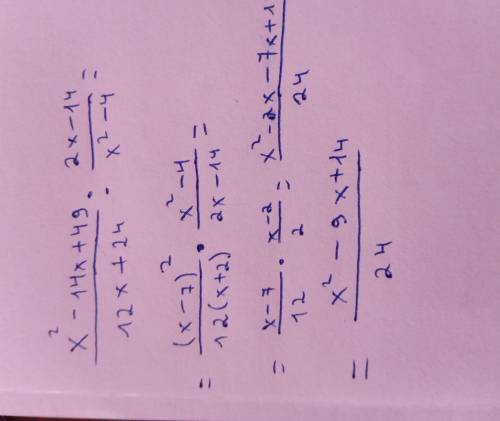 x² - 14x + 49 / 12x + 24 : 2x - 14 / x² - 4 =
= (x - 7)² / 12(x + 2) · x² - 4 / 2x - 14 =
= x - 7 / 12 · x - 2 / 2 = x² - 2x - 7x + 1 / 24
= x² - 9x + 14 / 24